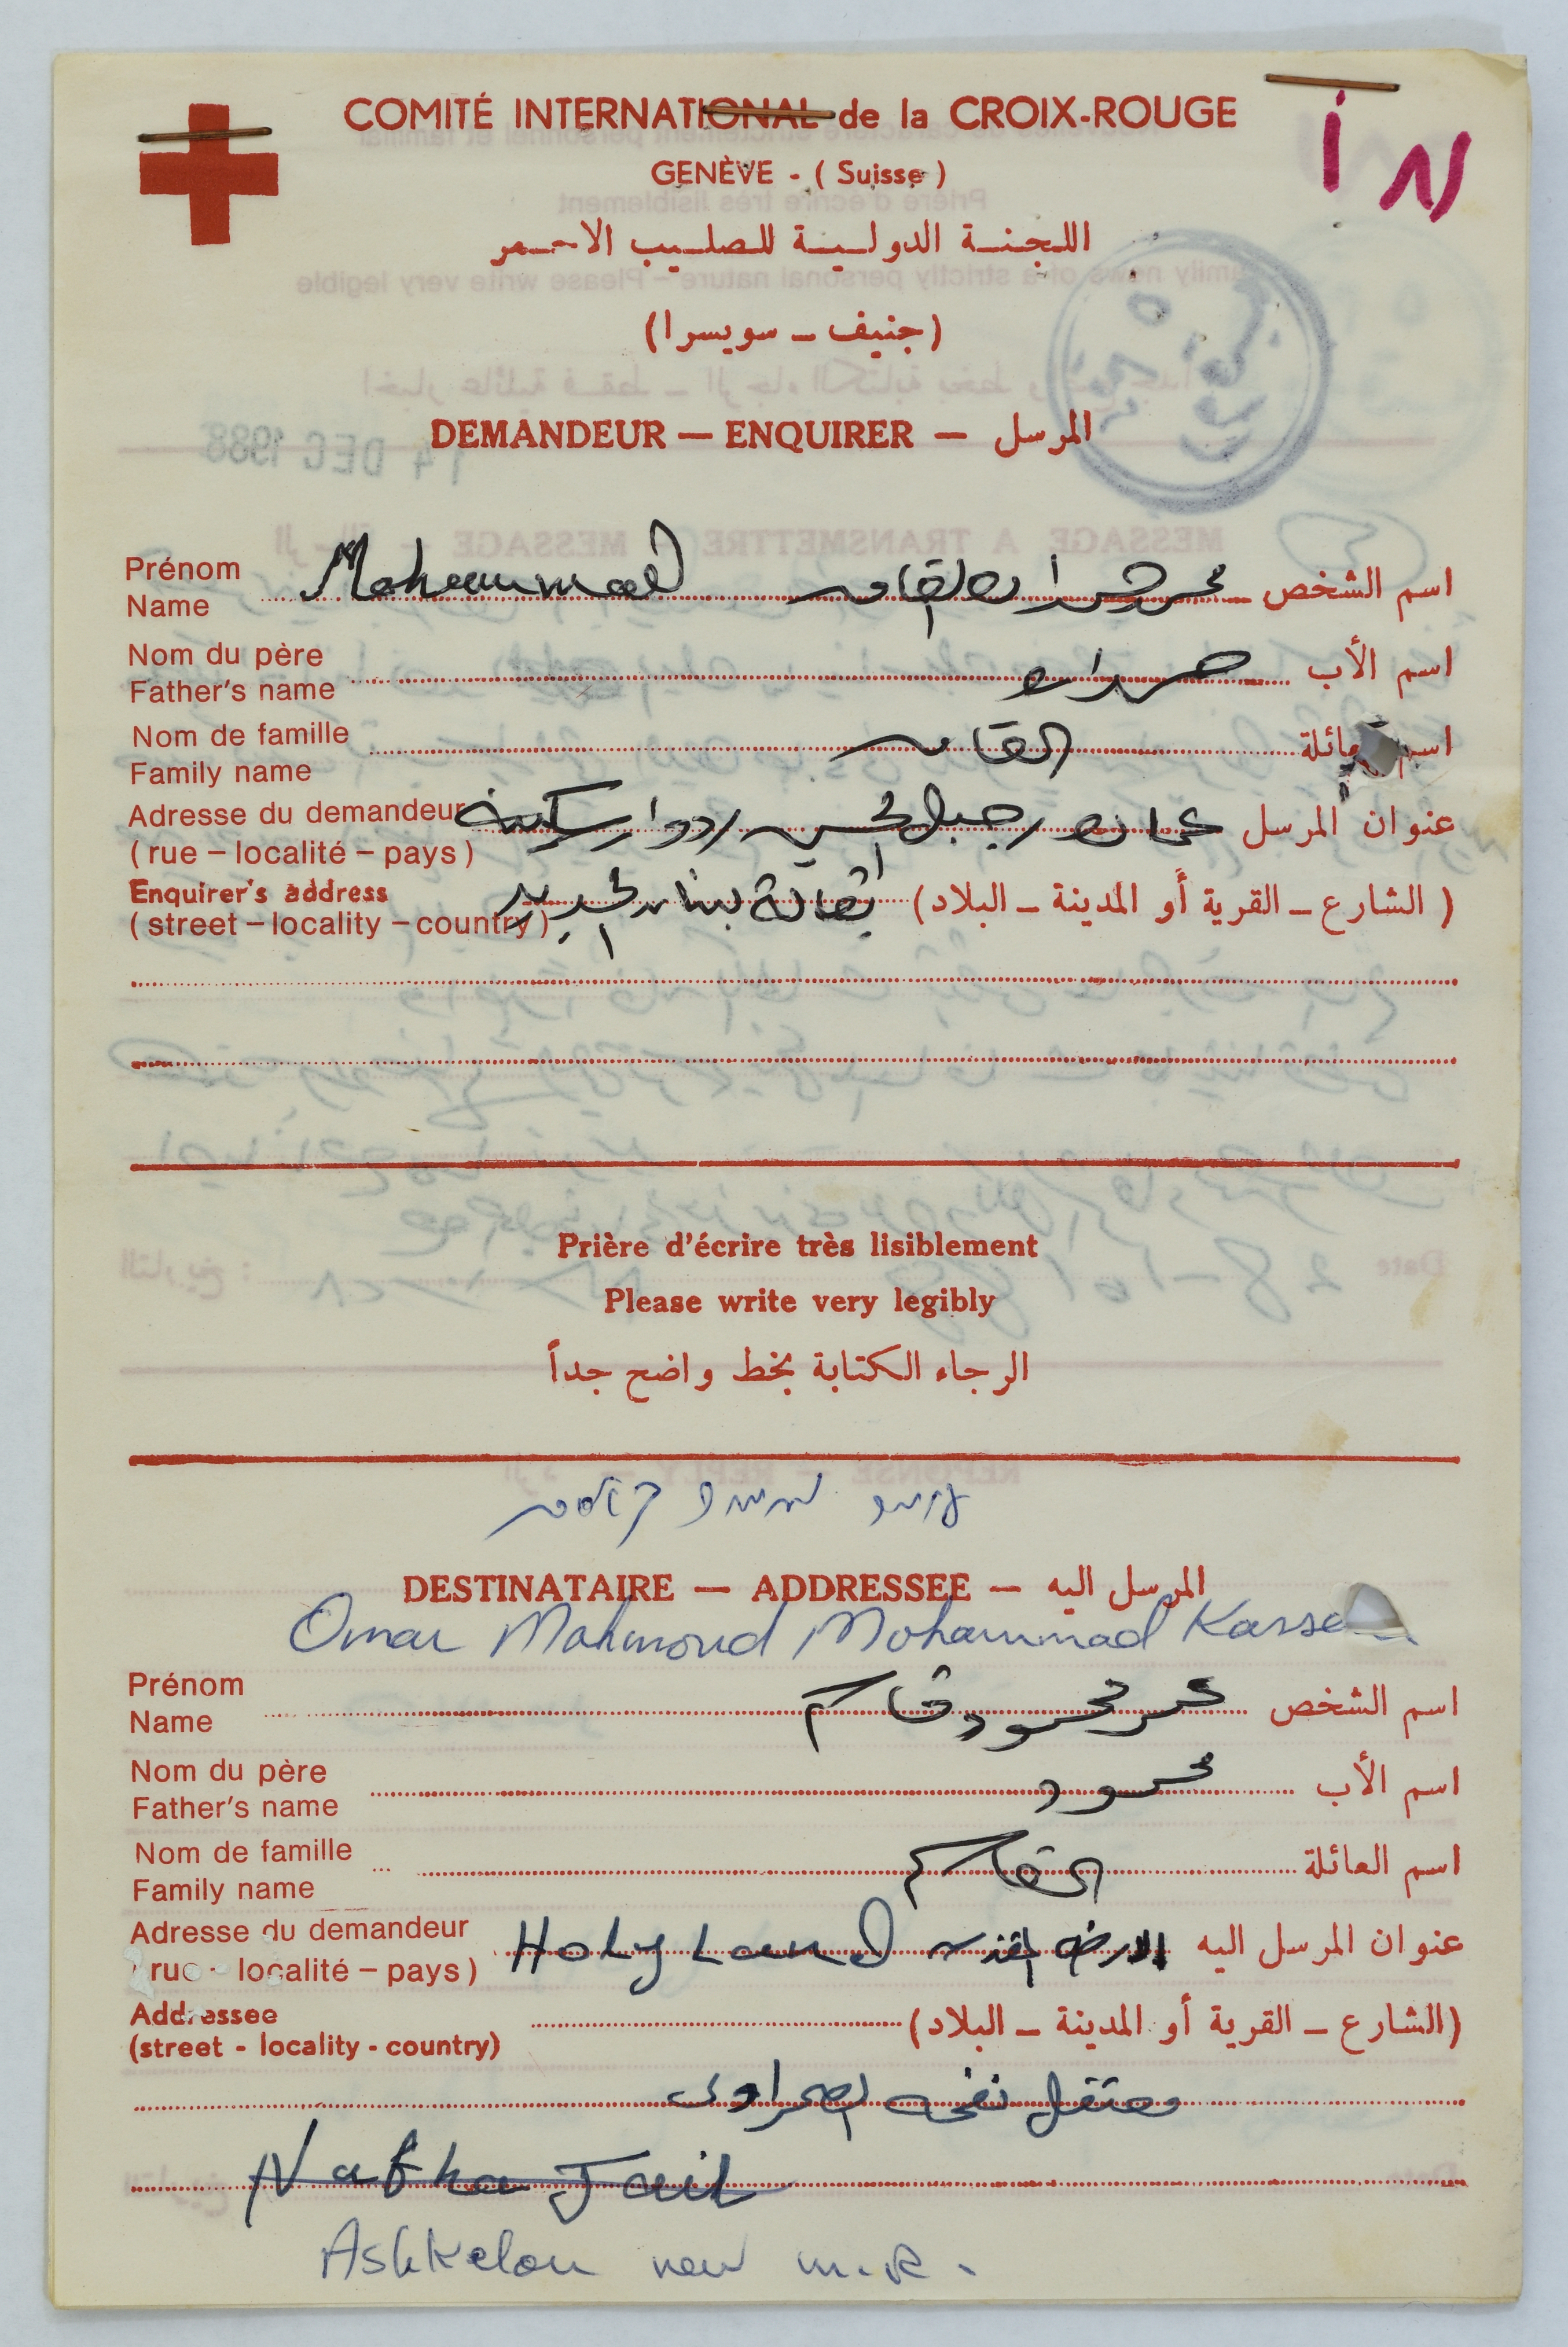 COMITÉ INTERNATIONAL de la CROIX-ROUGE
GENÈVE - ( Suisse )
اللجنة الدولية للصليب الاحمر
(جنيف - سويسرا)
14 DEC 1988
DEMANDEUR — ENQUIRER — المرسل
Prénom
Name
Mohammad محمد حمدان القاسم
اسم الشخص
Nom du père
Father's name
حمدان
اسم الأب
Nom de famille
Family name
القاسم
اسم العائلة
Adresse du demandeur
(rue – localité – pays)
عمان جبل الحسين دوار سكينة
عنوان المرسل
Enquirer's address
(street – locality – country)
بقالة
(الشارع - القرية أو المدينة - البلاد)
Prière d'écrire très lisiblement
Please write very legibly
الرجاء الكتابة بخط واضح جداً
קאסם
DESTINATAIRE — ADDRESSEE — المرسل اليه
Omar Mahmoud Mohammad Kasse
Prénom
Name
عمر محمود قاسم
اسم الشخص
Nom du père
Father's name
محمود
اسم الأب
Nom de famille
Family name
القاسم
اسم العائلة
Adresse du demandeur
(rue - localité – pays)
Holy Land الارض المقدسة
عنوان المرسل اليه
Addressee
(street - locality - country)
(الشارع - القرية أو المدينة - البلاد)
معتقل نفحة الصحراوي
Nafha Jail
Ashkelon new m.R.